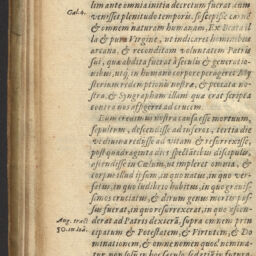 lim ante omnia initia decretum fuerat cùm
Gal.4.
venisset plenitudo temporis, suscepisse carnē
& omnem naturam humanam, ex Beata il
la & pura Virgine, ut indicaret hominibus
arcana, & reconditam voluntatem Patris
sui, quæ abdita fuerat à seculis & generatio-
nibus: utq, in humano corpore perageret My-
sterium redemptionis nostræ, & peccata no-
stra, & Syngrapham illam quæ erat scripta
contra nos affigeret ad crucem.
Eum credimus nostra causa esse mortuum,
sepultum, descendisse ad inferos, tertia die
vivum
rediisse ad vitam & resurrexisse,
post quadraginta dies spectātibus discipulis,
ascendisse in Cœlum, ut impleret omnia, &
corpus illud ipsum, in quo natus, in quo ver-
satus, in quo ludibrio habitus, in quo gravis-
simos cruciatus, & dirum genus mortis pas-
sus fuerat, in quo resurrexerat, in quo ascen-
Aug. tract
derat ad Patris dexterā, supra omnem prin
50. in
cipatum & Potestatem, & Virtutem, & Do
minationem, & omne nomen quod nomina-
tur non solū in hoc seculo, sed etiā in futuro